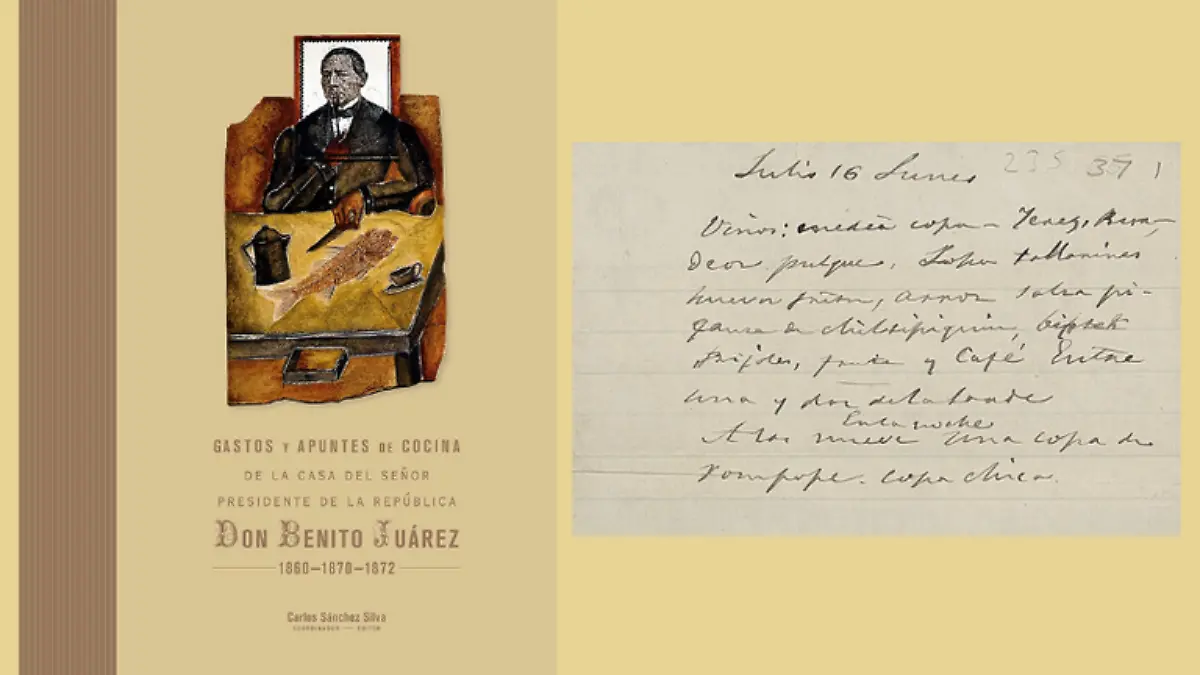 GASTOS Y APUNTES DE COCINA
DE LA CASA DEL SEÑOR
PRESIDENTE DE LA REPÚBLICA
DON BENITO JUÁREZ
1860–1870–1872
Carlos Sánchez Silva
COORDINADOR — EDITOR
Julio 16 Lunes 235 37 1
Vinos: media copa – Jerez, Burª,
deos pulque, Sopa tallarines
huevos fritos, arroz salsa pi-
cante de chilesipiquin, biftek
Frijoles, fruta y Café Entre
una y dos de la tarde
En la noche
A las nueve una copa de
rompope. copa chica.